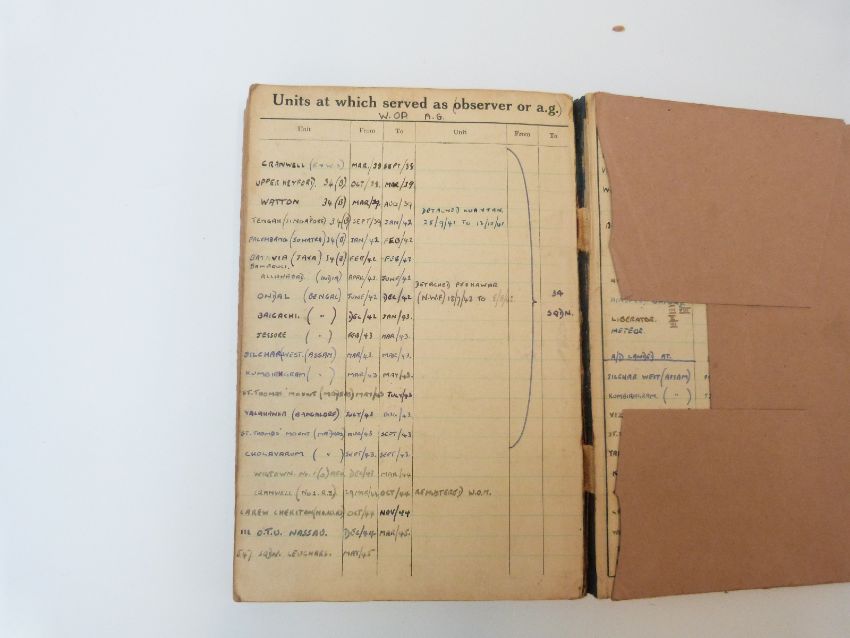 Units at which served as (observer or a.g.)
W.OP. A.G.
Unit From To Unit From To
CRANWELL MAR./38 SEPT/38
UPPER HEYFORD. 34(B) OCT/38. MAR/39
WATTON 34(B) MAR/39. AUG/39
DETACHED KUANTAN
TENGAH/SINGAPORE) 34(B) SEPT/39 JAN/42 25/9/41 TO 12/10/41
PALEMBANG (SUMATRA) 34(B) JAN/42 FEB/42
BATAVIA (JAVA) 34(B) FEB/42 FEB/42
ALLAHABAD. (INDIA) APRIL/42 JUNE/42 DETACHED PESHAWAR
ONDAL (BENGAL) JUNE/42 DEC/42 (N.W.F) TO 34
BAIGACHI. ( " ) DEC/42 JAN/43. SQDN.
JESSORE ( " ) FEB/43 MAR/43.
SILCHAR WEST. (ASSAM) MAR/43. MAR/43.
KUMBHIRGRAM ( " ) MAR/43 MAY/43.
ST. THOMAS' MOUNT (MADRAS) MAY/43 JULY/43
YALAHANKA (BANGALORE) JULY/43 AUG/43.
ST. THOMAS' MOUNT (MADRAS) AUG/43 SEPT/43
CHOLAVARUM ( " ) SEPT/43. SEPT/43.
WIGTOWN. No. 1 DEC/43 MAR/44
CRANWELL (No1. R.S) OCT/44 REMUSTERED W.O.M.
CAREW CHERITON OCT/44 NOV/44
111 O.T.U. NASSAU. DEC/44. MAR/45.
547 SQDN. LEUCHARS. MAY/45
LIBERATOR.
METEOR.
A/D LANDED AT.
SILCHAR WEST (ASSAM)
KUMBHIRGRAM. ( " )